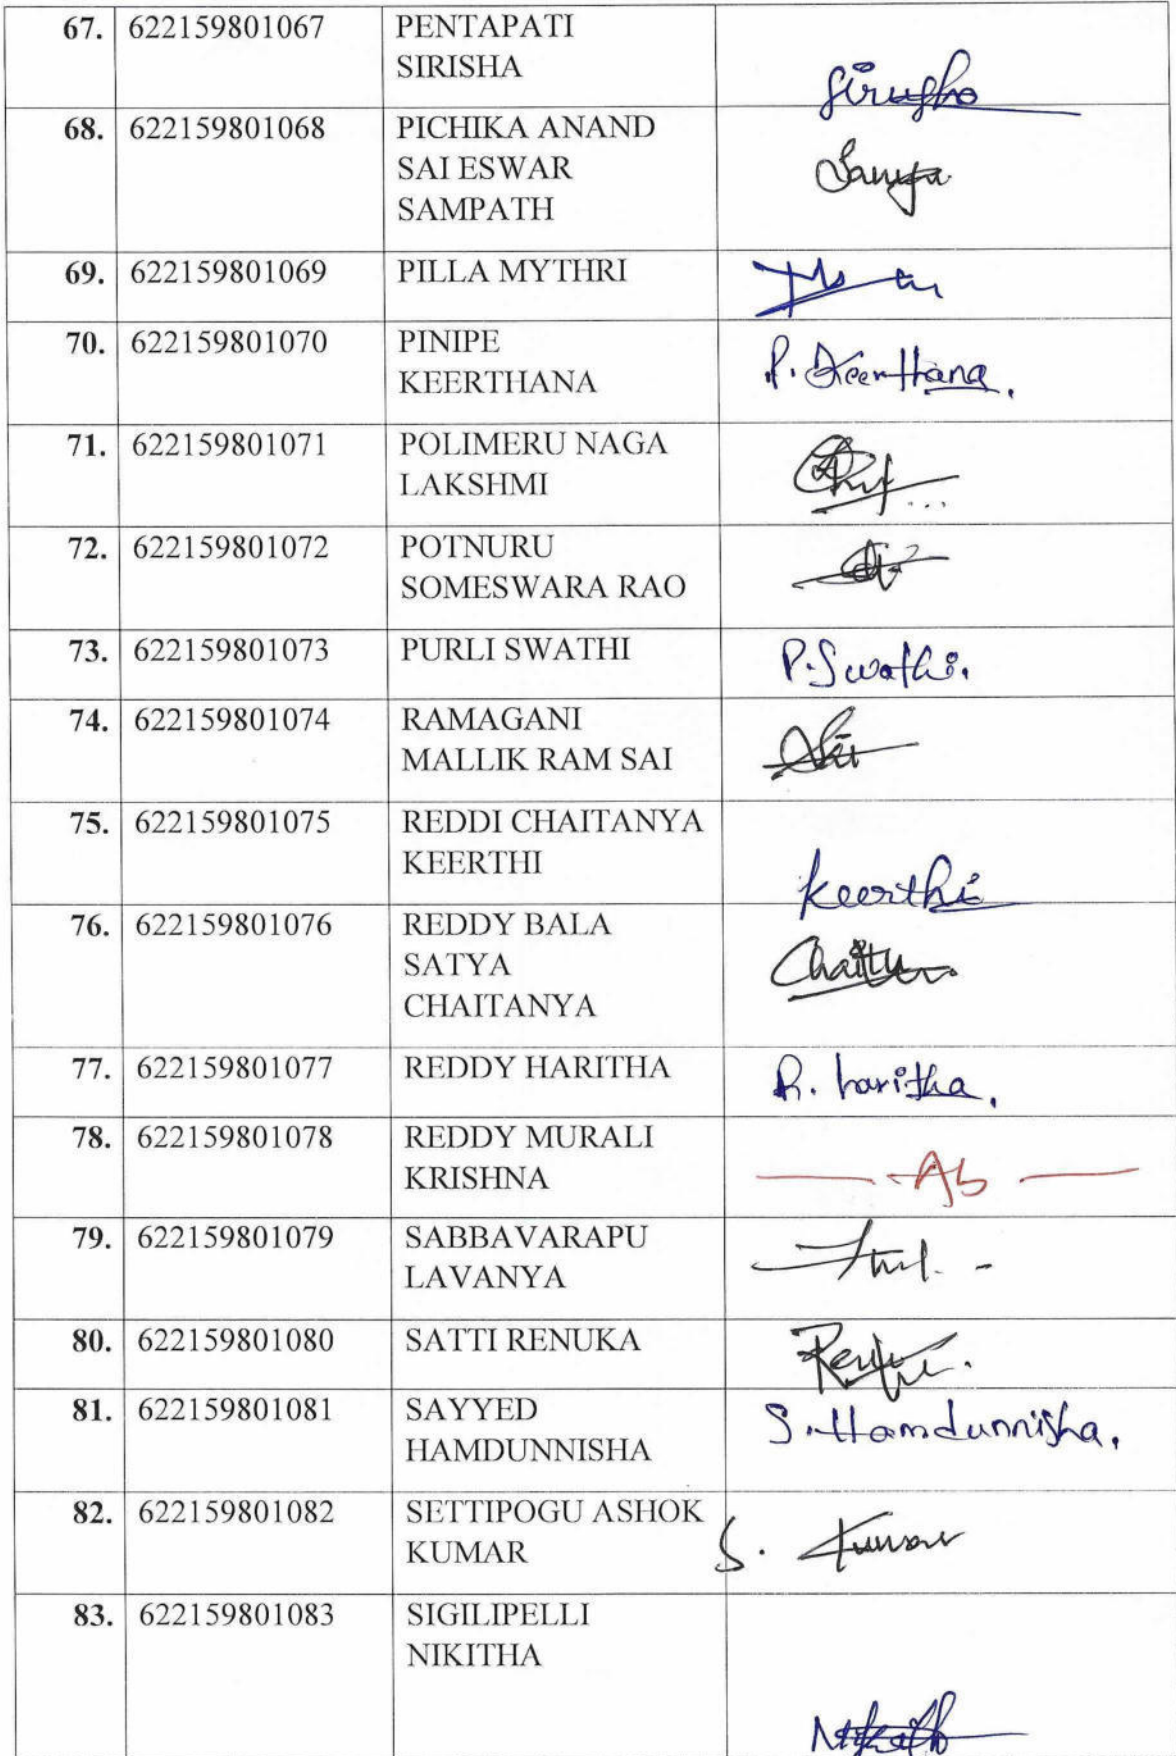 67. 622159801067 PENTAPATI
SIRISHA
68. 622159801068 PICHIKA ANAND
SAI ESWAR
SAMPATH
69. 622159801069 PILLA MYTHRI
70. 622159801070 PINIPE
KEERTHANA P. Keerthana.
71. 622159801071 POLIMERU NAGA
LAKSHMI
72. 622159801072 POTNURU
SOMESWARA RAO
73. 622159801073 PURLI SWATHI P. Swathi.
74. 622159801074 RAMAGANI
MALLIK RAM SAI
75. 622159801075 REDDI CHAITANYA
KEERTHI
Keerthi
76. 622159801076 REDDY BALA
SATYA
CHAITANYA
77. 622159801077 REDDY HARITHA R. haritha.
78. 622159801078 REDDY MURALI
KRISHNA Ab
79. 622159801079 SABBAVARAPU
LAVANYA
80. 622159801080 SATTI RENUKA
81. 622159801081 SAYYED S. Hamdunnisha.
HAMDUNNISHA
82. 622159801082 SETTIPOGU ASHOK
KUMAR S. Kumar
83. 622159801083 SIGILIPELLI
NIKITHA